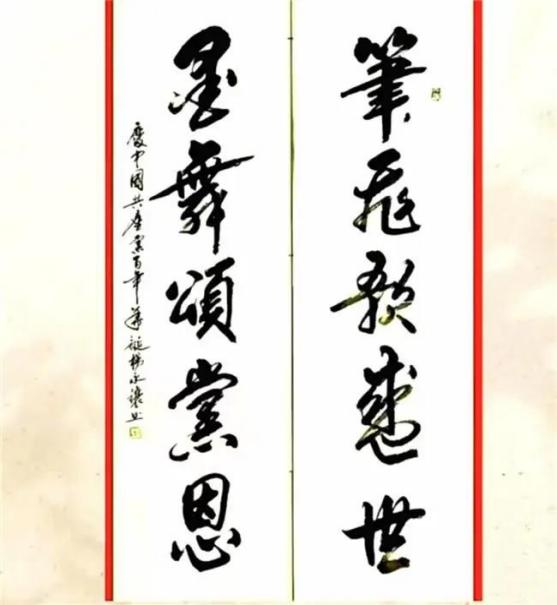 筆飛歌盛世
墨舞頌黨恩
慶中國共產黨百年華誕楊永讓书